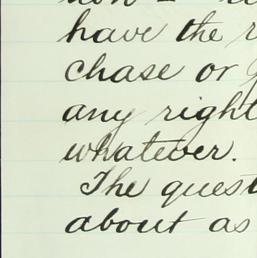 have the
chase or
any right
whatever.
The quest
about as